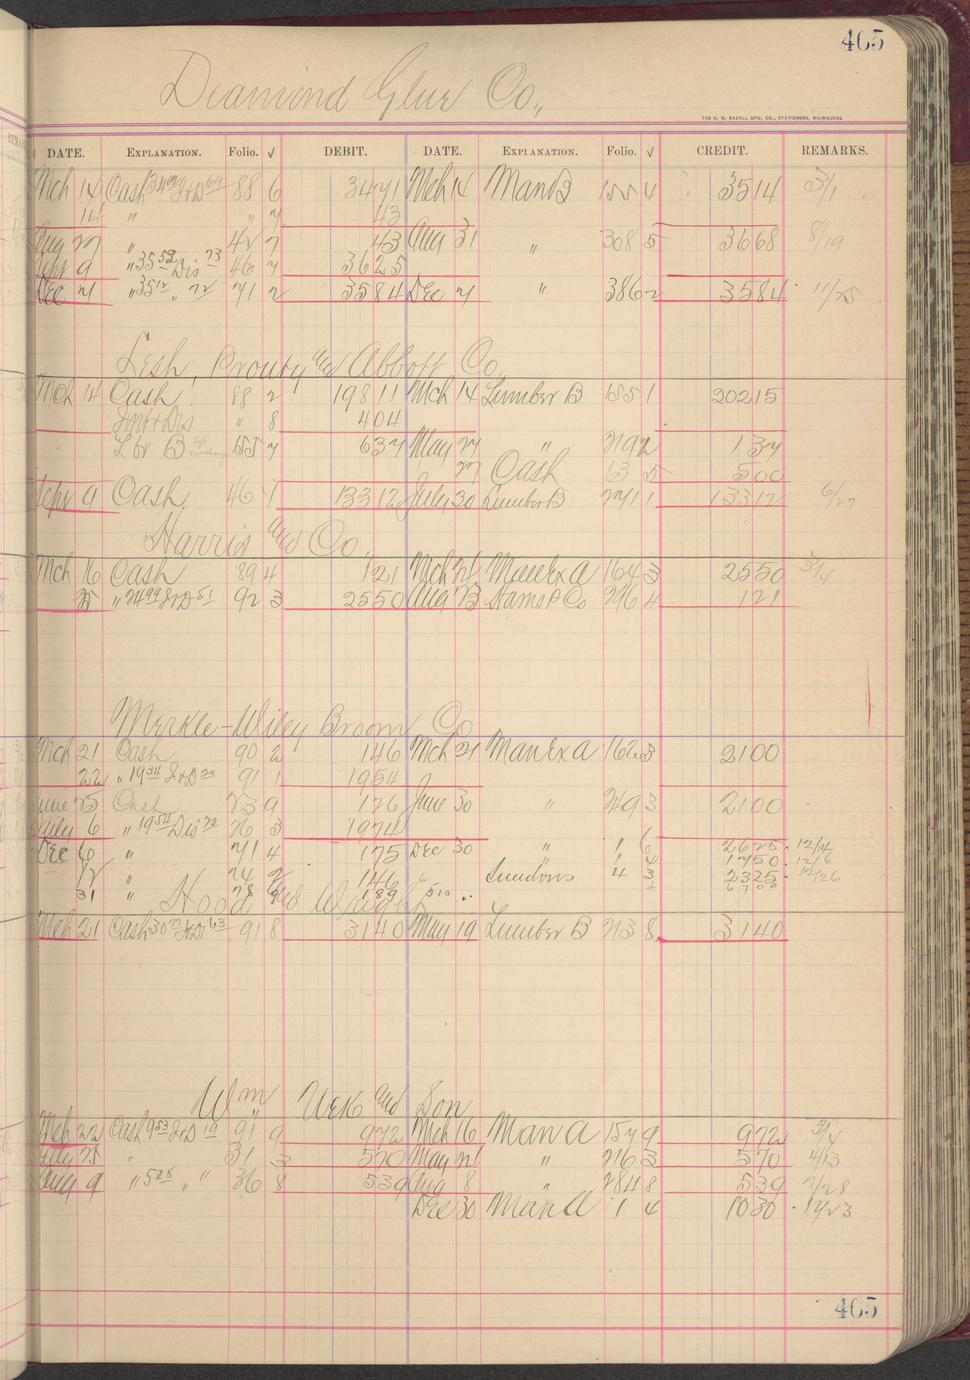 465
Diamond Glue Co.,
THE H. G. RAZALL MFG. CO., STATIONERS, MILWAUKEE.
DATE. EXPLANATION. Folio. √ DEBIT. DATE. EXPLANATION. Folio. √ CREDIT. REMARKS.
Mch 14 Cash 88 6 3471 Mch 14 Man B 155 4 3514 3/1
14 " " 7 43
Aug 27 " 42 7 43 Aug 31 " 308 5 3668 8/19
Sept 9 " 35 52 Dis 73 46 7 3625
Dec 7 " 35 12 " 72 71 2 3584 Dec 7 " 386 2 3584 11/25
Lesh, Prouty and Abbott Co.
Mch 14 Cash 88 2 19811 Mch 14 Lumber B 155 1 20215
Frt + Dis " 8 404
Lbr B 155 7 637 May 27 " 292 137
27 Cash 13 5 500
Sept 9 Cash 46 7 13312 July 30 Lumber B 271 1 13312 6/27
Harris and Co.
Mch 16 Cash 89 4 121 Mch 21 Man Ex A 164 3 2550 3/4
25 " 24 99 Fr D 51 92 3 2550 Aug 23 Hams P Co 296 4 121
Myrkle-Wiley Broom Co
Mch 21 Cash 90 2 146 Mch 21 Man Ex A 162 3 2100
22 " 19 34 Fr D 20 91 1 1954
June 25 Cash 23 9 126 June 30 " 249 3 2100
July 6 " 19 54 Dis 26 3 1974
Dec 6 " 71 4 175 Dec 30 " 1 6 2625 12/4
" 1 1750 12/6
12 " 74 2 146 Sundries 4 2325 12/26
31 " 78 189 510 6700
Hood and Wright
Mch 21 Cash 91 8 3140 May 19 Lumber B 213 8 3140
Wm Uek and Son
Mch 22 Cash 9 53 Fr D 19 91 9 972 Mch 16 Man A 157 9 972 3/4
July 25 " 31 3 570 May 21 " 216 3 570 4/13
Aug 9 " 5 28 " " 36 8 539 Aug 8 " 284 8 539 7/28
Dec 30 Man A 1 4 1030 12/23
465